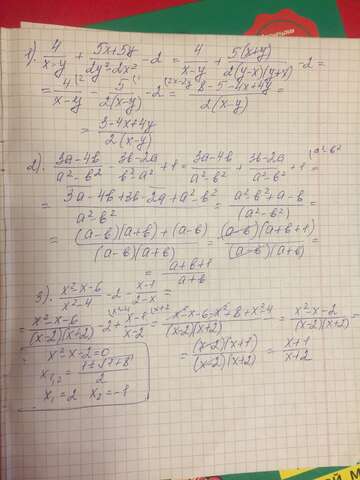 1). 4/(x-y) + (5x+5y)/(2y²-2x²) - 2 = 4/(x-y) + 5(x+y)/(2(y-x)(y+x)) - 2 =
= 4/(x-y) (2 - 5/(2(x-y)) - 2 (2x-2y = (8-5-4x+4y)/(2(x-y)) =
= (3-4x+4y)/(2(x-y))
2). (3a-4b)/(a²-b²) - (3b-2a)/(b²-a²) + 1 = (3a-4b)/(a²-b²) + (3b-2a)/(a²-b²) + 1 (a²-b² =
= (3a-4b+3b-2a+a²-b²)/(a²-b²) = (a²-b²+a-b)/(a²-b²) =
= ((a-b)(a+b)+(a-b))/((a-b)(a+b)) = ((a-b)(a+b+1))/((a-b)(a+b)) =
= (a+b+1)/(a+b)
3). (x²-x-6)/(x²-4) - 2 - (x-1)/(2-x) =
= (x²-x-6)/((x-2)(x+2)) - 2 (x²-4 + (x-1)/(x-2) (x+2 = (x²-x-6-2x²+8+x²+x-2)/((x-2)(x+2)) = (x²-x-2)/((x-2)(x+2)) =
x²-x-2=0
x₁,₂ = (1±√1+8)/2
x₁=2 x₂=-1
= ((x-2)(x+1))/((x-2)(x+2)) = (x+1)/(x+2)